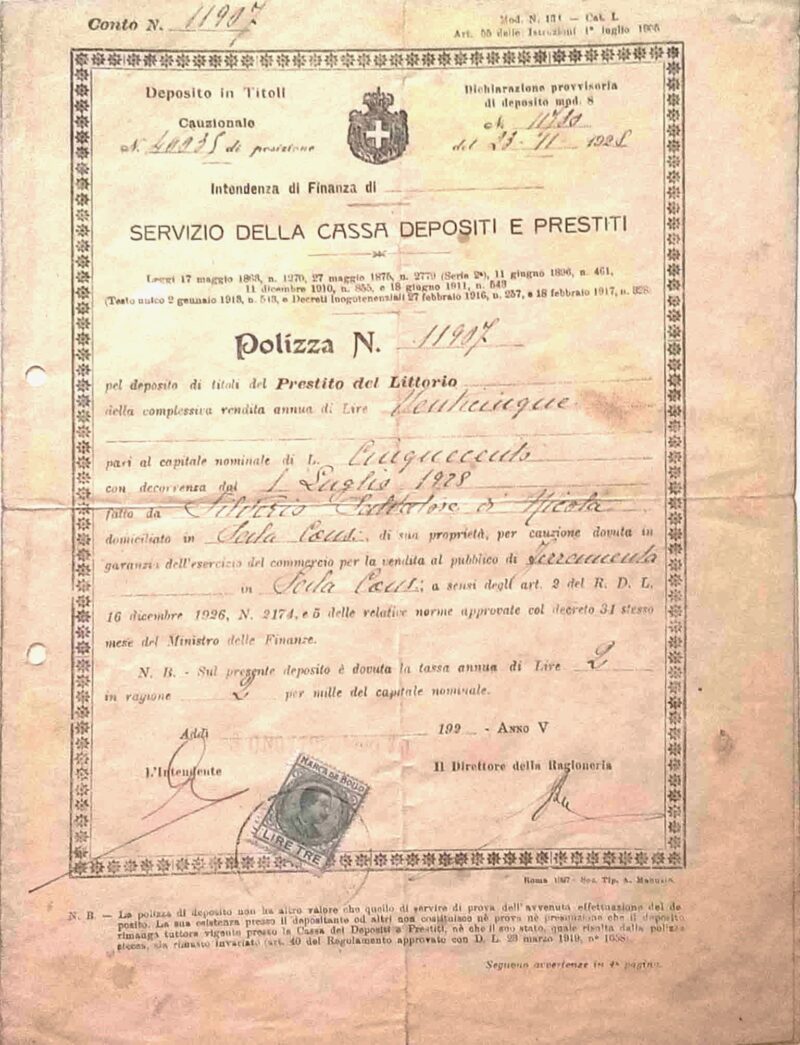 Conto N. 11907
Mod. N. 131 — Cat. I.
Art. 55 delle Istruzioni 1° luglio
Deposito in Titoli
Cauzionale
N. 40935 di posizione
Dichiarazione provvisoria
di deposito mod. 8
N.
del 23-11- 1928
Intendenza di Finanza di
SERVIZIO DELLA CASSA DEPOSITI E PRESTITI
Leggi 17 maggio 1863, n. 1270, 27 maggio 1875, n. 2779 (Serie 2ª), 11 giugno 1896, n. 461,
11 dicembre 1910, n. 855, e 18 giugno 1911, n. 543
(Testo unico 2 gennaio 1913, n. 513, e Decreti luogotenenziali 27 febbraio 1916, n. 257, e 18 febbraio 1917, n. 328
Polizza N. 11907
pel deposito di titoli del Prestito del Littorio
della complessiva rendita annua di Lire Venticinque
pari al capitale nominale di L. Cinquecento
con decorrenza dal 1 Luglio 1928
fatto da Salvatore di Nicola
domiciliato in di sua proprietà, per cauzione dovuta in
garanzia dell'esercizio del commercio per la vendita al pubblico di Ferramenta
in a sensi degli art. 2 del R. D. L.
16 dicembre 1926, N. 2174, e 5 delle relative norme approvate col decreto 31 stesso
mese del Ministro delle Finanze.
N. B. - Sul presente deposito è dovuta la tassa annua di Lire 2
in ragione 2 per mille del capitale nominale.
Addì 192 - Anno V
L'Intendente
Il Direttore della Ragioneria
MARCA DA BOLLO
LIRE TRE
Roma 1927 - Soc. Tip. A. Manuzio
N. B. — La polizza di deposito non ha altro valore che quello di servire di prova dell'avvenuta effettuazione del de
posito. La sua esistenza presso il depositante od altri non costituisce nè prova nè presunzione che il deposito
rimanga tuttora vigente presso la Cassa dei Depositi e Prestiti, nè che il suo stato, quale risulta dalla polizza
stessa, sia rimasto invariato (art. 40 del Regolamento approvato con D. L. 23 marzo 1919, n° 1058)
Seguono avvertenze in 4ª pagina.